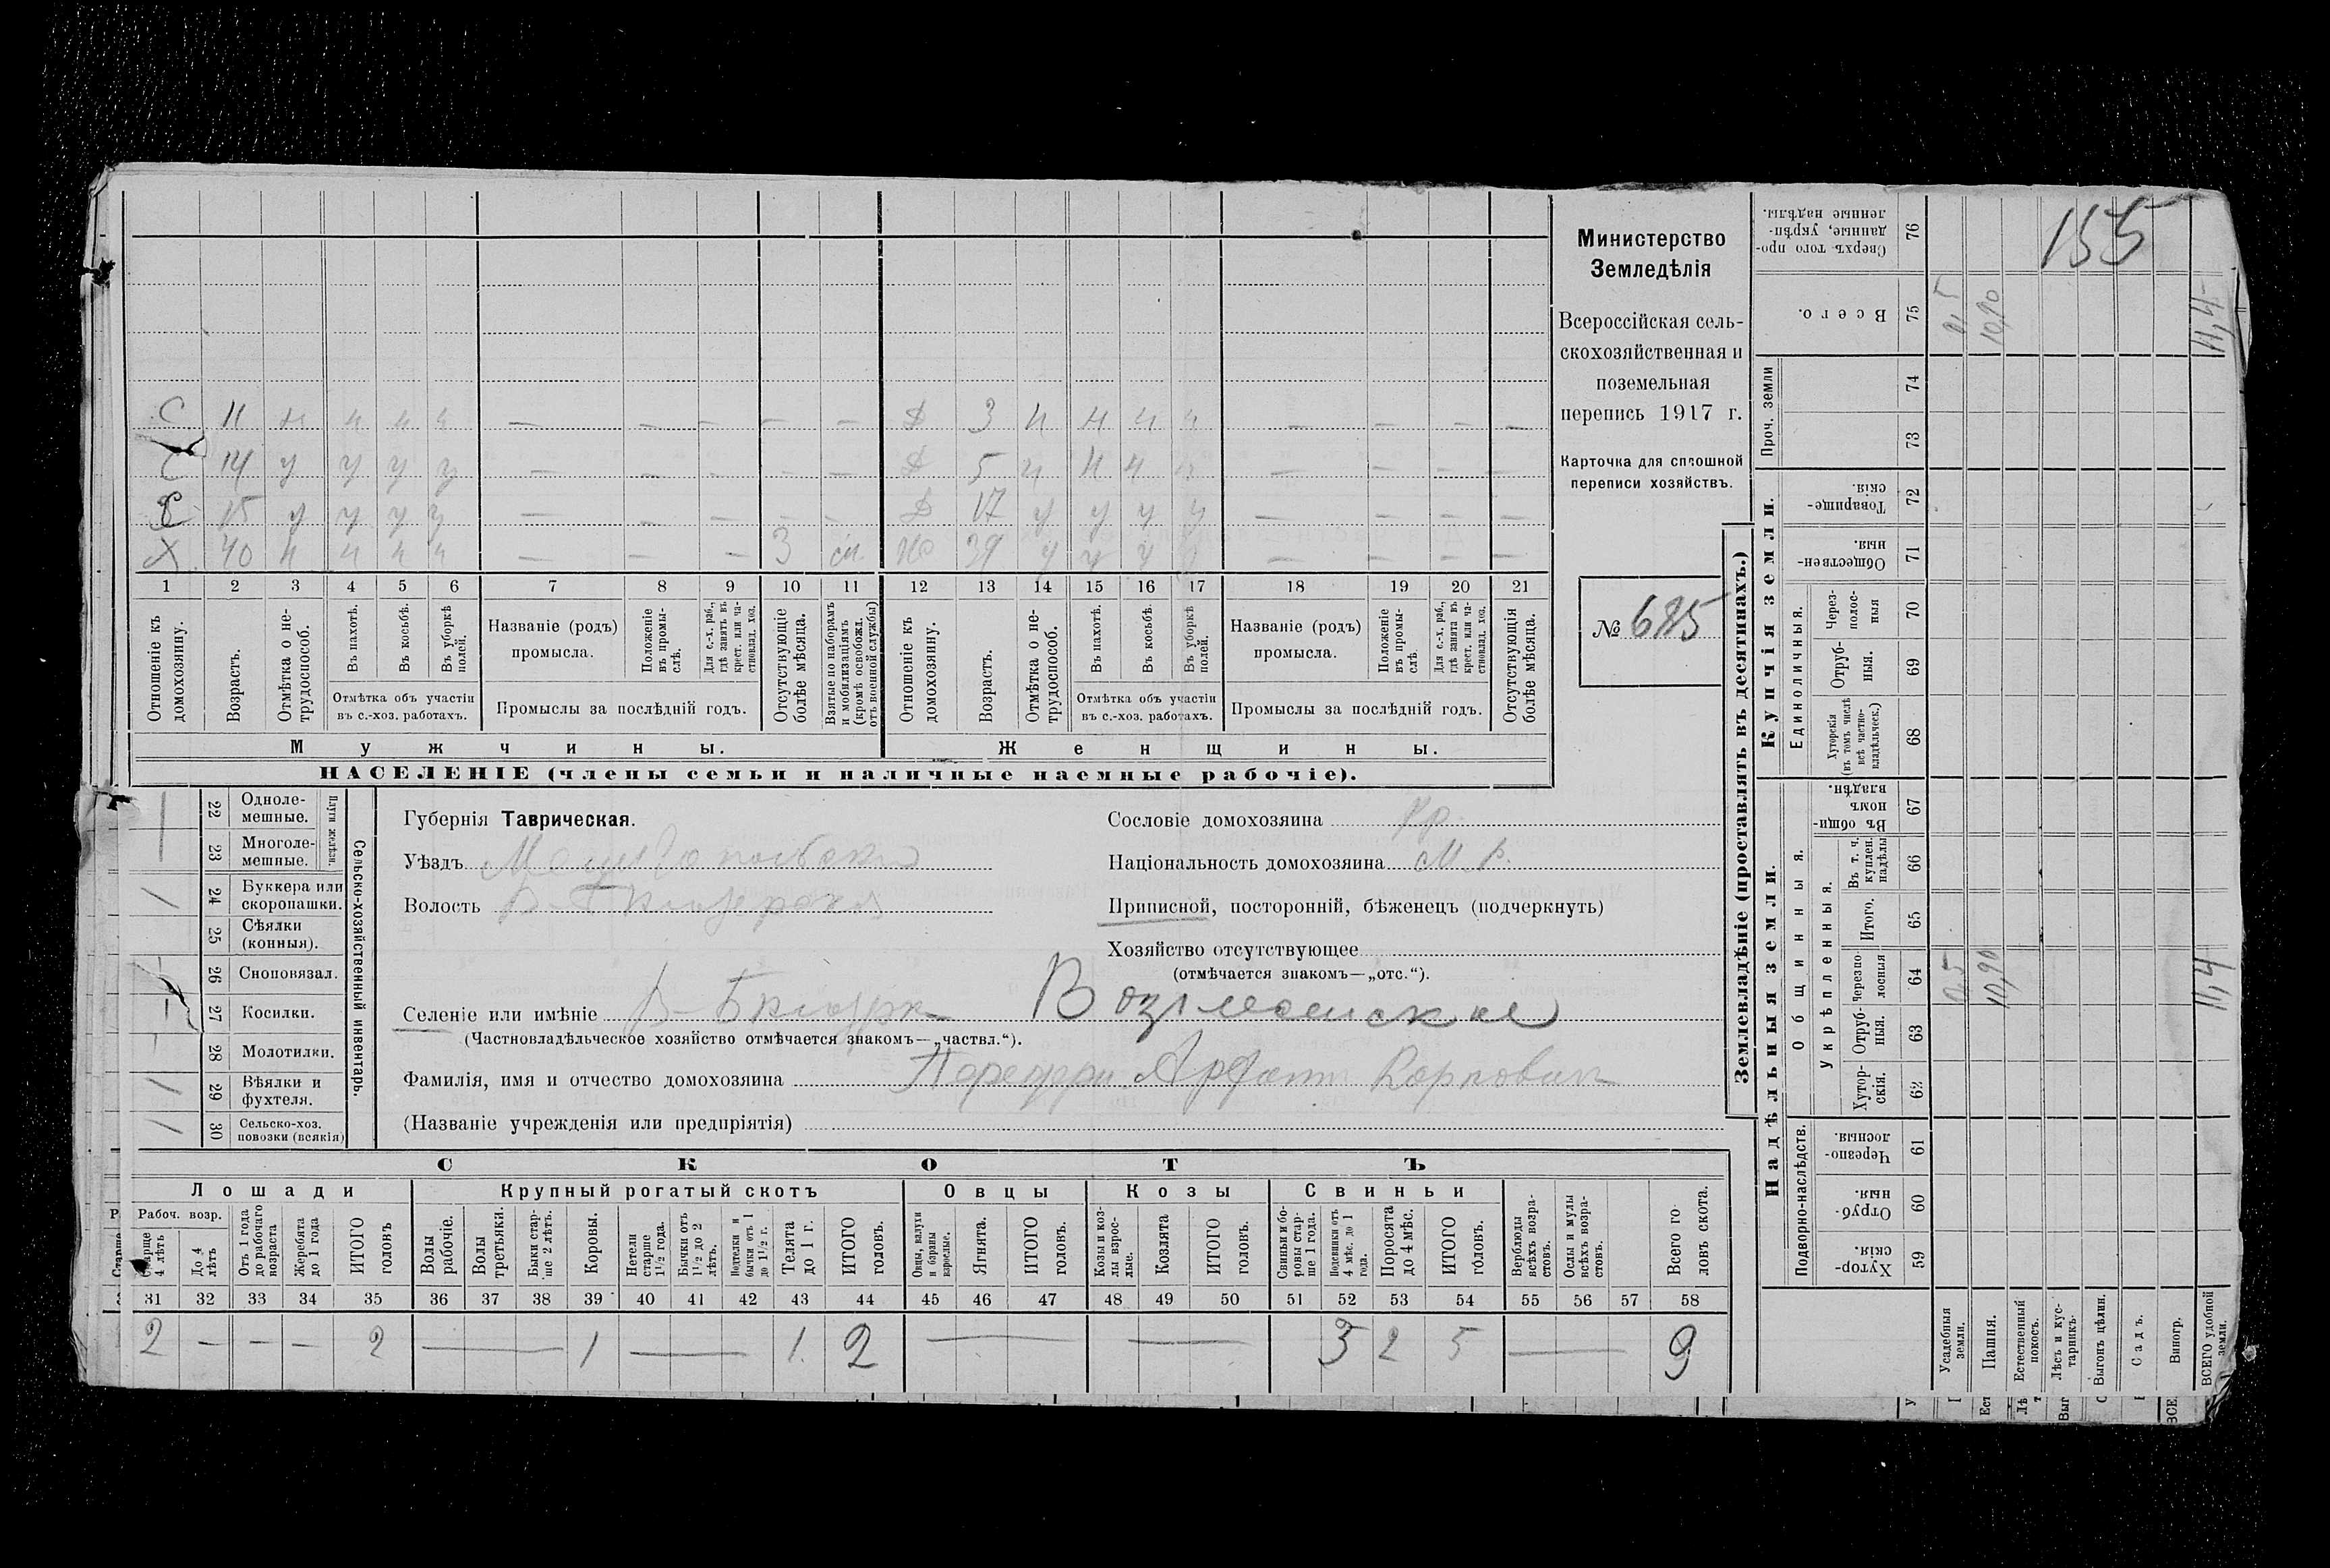 С 11 н н н н — — — — — Д 3 н н н н — — — —
С 14 у у у у — — — — — Д 5 н н н н — — — —
С 15 у у у у — — — — — Д 17 у у у у — — — —
Х 40 н н н н — — — 3 сл. Ж 39 у у у у — — — —
1 2 3 4 5 6 7 8 9 10 11 12 13 14 15 16 17 18 19 20 21
Отношеніе къ домохозяину.
Возрастъ.
Отмѣтка о не-
трудоспособ.
Въ пахотѣ.
Въ косьбѣ.
Въ уборкѣ полей.
Отмѣтка объ участіи
въ с.-хоз. работахъ.
Названіе (родъ)
промысла.
Положеніе въ промы-
слѣ.
Для с.-х. раб., гдѣ занятъ въ крест. или ча-
стновлад. хоз.
Промыслы за послѣдній годъ.
Отсутствующіе болѣе мѣсяца.
Взятые по наборамъ и мобилизаціямъ (кромѣ освобожд. отъ военной службы)
Отношеніе къ домохозяину.
Возрастъ.
Отмѣтка о не-
трудоспособ.
Въ пахотѣ.
Въ косьбѣ.
Въ уборкѣ полей.
Отмѣтка объ участіи
въ с.-хоз. работахъ.
Названіе (родъ)
промысла.
Положеніе въ промы-
слѣ.
Для с.-х. раб., гдѣ занята въ крест. или ча-
стновлад. хоз.
Промыслы за послѣдній годъ.
Отсутствующія болѣе мѣсяца.
Мужчины.
Женщины.
НАСЕЛЕНІЕ (члены семьи и наличные наемные рабочіе).
Министерство
Земледѣлія
Всероссійская сель-
скохозяйственная и
поземельная
перепись 1917 г.
Карточка для сплошной
переписи хозяйствъ.
№ 685
Сельско-хозяйственный инвентарь.
Плуги желѣзн.
22 Одноле-
мешные.
23 Многоле-
мешные.
24 Буккера или
скоропашки.
25 Сѣялки
(конныя).
26 Сноповязал.
27 Косилки.
28 Молотилки.
29 Вѣялки и
фухтеля.
30 Сельско-хоз.
повозки (всякія)
Губернія Таврическая.
Уѣздъ
Волость
Сословіе домохозяина кр.
Національность домохозяина М. р.
Приписной, посторонній, бѣженецъ (подчеркнуть)
Хозяйство отсутствующее
(отмѣчается знакомъ—„отс.“).
Селеніе или имѣніе
(Частновладѣльческое хозяйство отмѣчается знакомъ—„частвл.“).
Фамилія, имя и отчество домохозяина Карпович
(Названіе учрежденія или предпріятія)
СКОТЪ
Лошади
Крупный рогатый скотъ
Овцы
Козы
Свиньи
Рабоч. возр.
Старше 4 лѣтъ
До 4 лѣтъ
Отъ 1 года до рабочаго возраста
Жеребята до 1 года
ИТОГО головъ
Волы рабочіе.
Волы третьяки.
Быки стар-
ше 2 лѣтъ.
Коровы.
Нетели старше 1½ года.
Бычки отъ 1½ до 2 лѣтъ.
Подтелки и бычки отъ 1 до 1½ г.
Телята до 1 г.
ИТОГО головъ.
Овцы, валухи и бараны взрослые.
Ягнята.
ИТОГО головъ.
Козы и коз-
лы взрос-
лые.
Козлята
ИТОГО головъ.
Свиньи и бо-
ровы стар-
ше 1 года.
Подсвинки отъ 4 мѣс. до 1 года.
Поросята до 4 мѣс.
ИТОГО головъ.
Верблюды всѣхъ возра-
стовъ.
Ослы и мулы всѣхъ возра-
стовъ.
Всего го-
ловъ скота.
31 32 33 34 35 36 37 38 39 40 41 42 43 44 45 46 47 48 49 50 51 52 53 54 55 56 57 58
2 — — — 2 — 1 — 1 2 — — 3 2 5 — 9
Землевладѣніе (проставлять въ десятинахъ.)
Купчія земли.
Надѣльныя земли.
Сверхъ того про-
данные, укрѣп-
ленные надѣлы.
76
155
Всего.
75
10,90
11,4
Проч. земли
74
73
Товарище-
скія.
72
Обществен-
ныя.
71
Единоличныя.
Через-
полос-
ныя
70
Отруб-
ныя.
69
Хуторскія (въ томъ числѣ всѣ частно-
владѣльческ.)
68
Общинныя.
Въ общин-
номъ владѣн.
67
Укрѣпленныя.
Въ т. ч. куплен. надѣлы
66
Итого.
65
Черезпо-
лосныя
64
0,5
10,90
11,4
Отруб-
ныя.
63
Хутор-
скія.
62
Подворно-наслѣдств.
Черезпо-
лосныя
61
Отруб-
ныя.
60
Хутор-
скія.
59
Усадебныя земли.
Пашня.
Естественный покосъ.
Лѣсъ и кус-
тарникъ.
Выгонъ цѣлин.
Садъ.
Виногр.
ВСЕГО удобной земли.